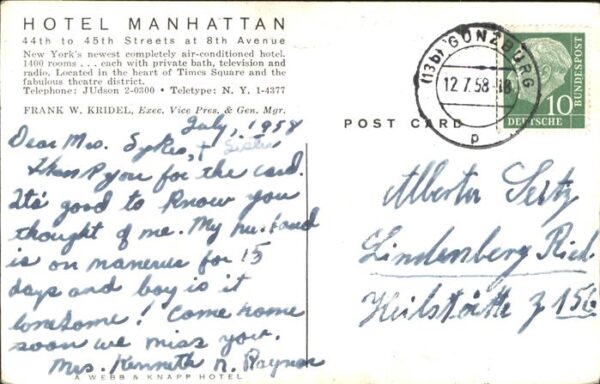 HOTEL MANHATTAN
44th to 45th Streets at 8th Avenue
New York's newest completely air-conditioned hotel.
1400 rooms . . . each with private bath, television and
radio. Located in the heart of Times Square and the
fabulous theatre district.
Telephone: JUdson 2-0300 • Teletype: N. Y. 1-4377
FRANK W. KRIDEL, Exec. Vice Pres. & Gen. Mgr.
July, 1958
Dear Mrs. Sykes, + Sister
Thank you for the card.
It's good to know you
thought of me. My husband
is on manerus for 15
days and boy is it
lonesome! Come home
soon we miss you.
Mrs. Kenneth R. Raynor
A WEBB & KNAPP HOTEL
POST CARD
(13b) GÜNZBURG
12.7.58.-18
p
10
DEUTSCHE
BUNDESPOST
Alberter Seitz
Lindenberg Ried.
Heilstätte Z 156